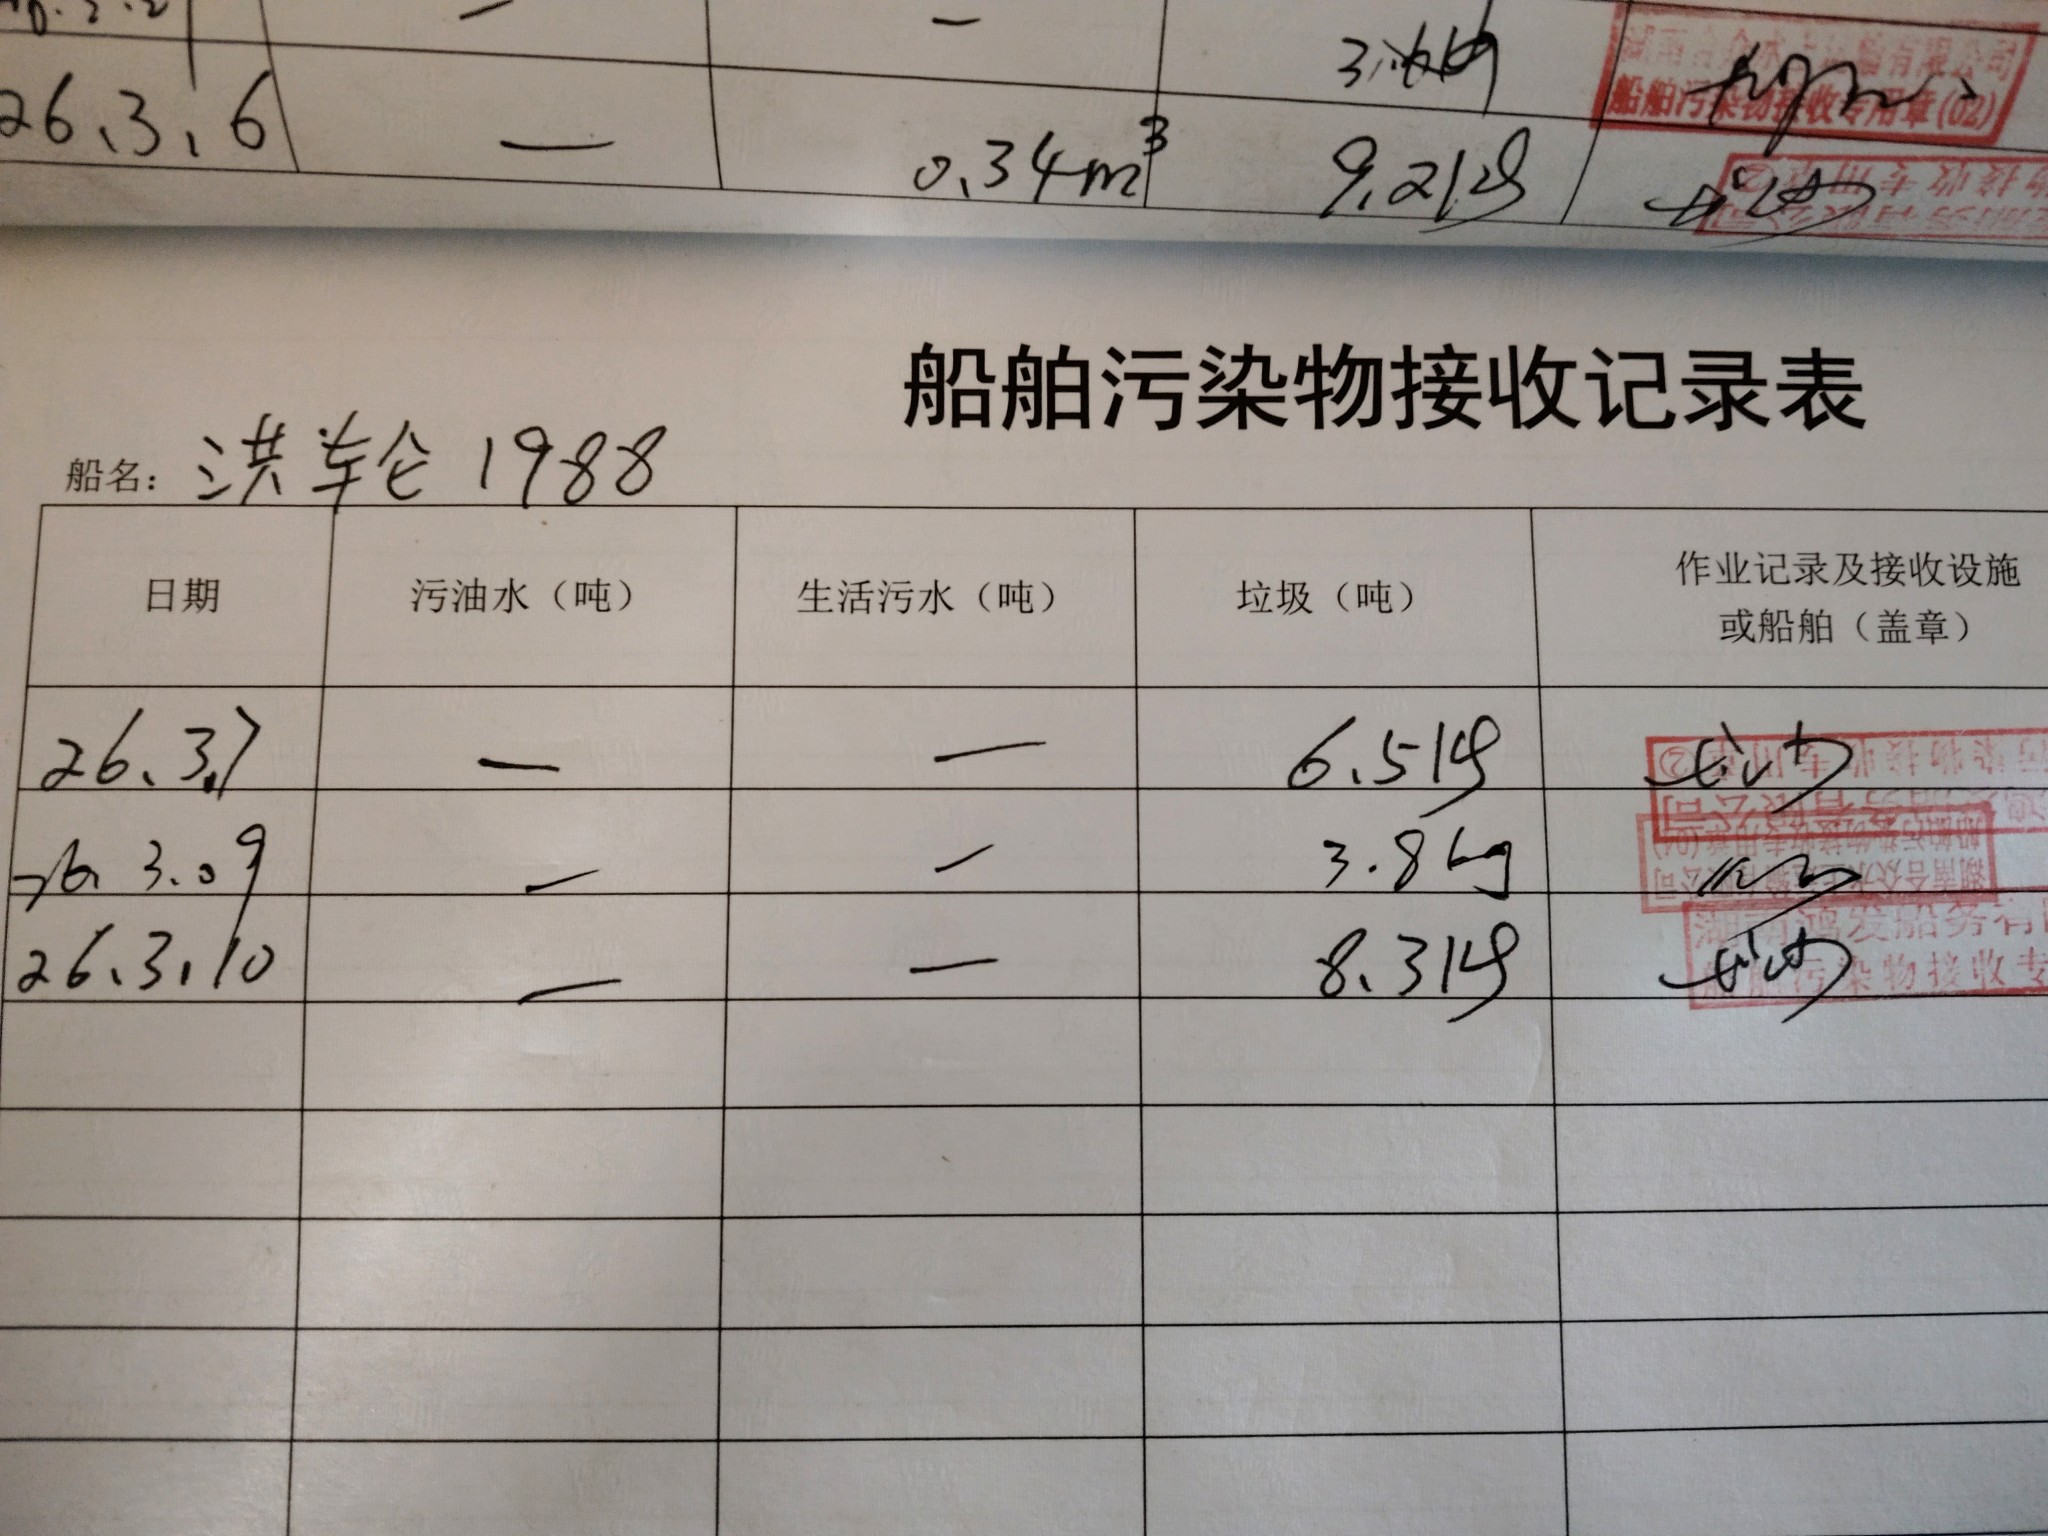 26.3.6 — 0.34m³ 9.2kg
船舶污染物接收专用章(02)
船舶污染物接收记录表
船名: 洪轮1988
日期 污油水（吨） 生活污水（吨） 垃圾（吨） 作业记录及接收设施
或船舶（盖章）
26.3.7 — — 6.5kg
26.3.09 — — 3.8kg
26.3.10 — — 8.3kg
湖南鸿发船务有
船舶污染物接收专